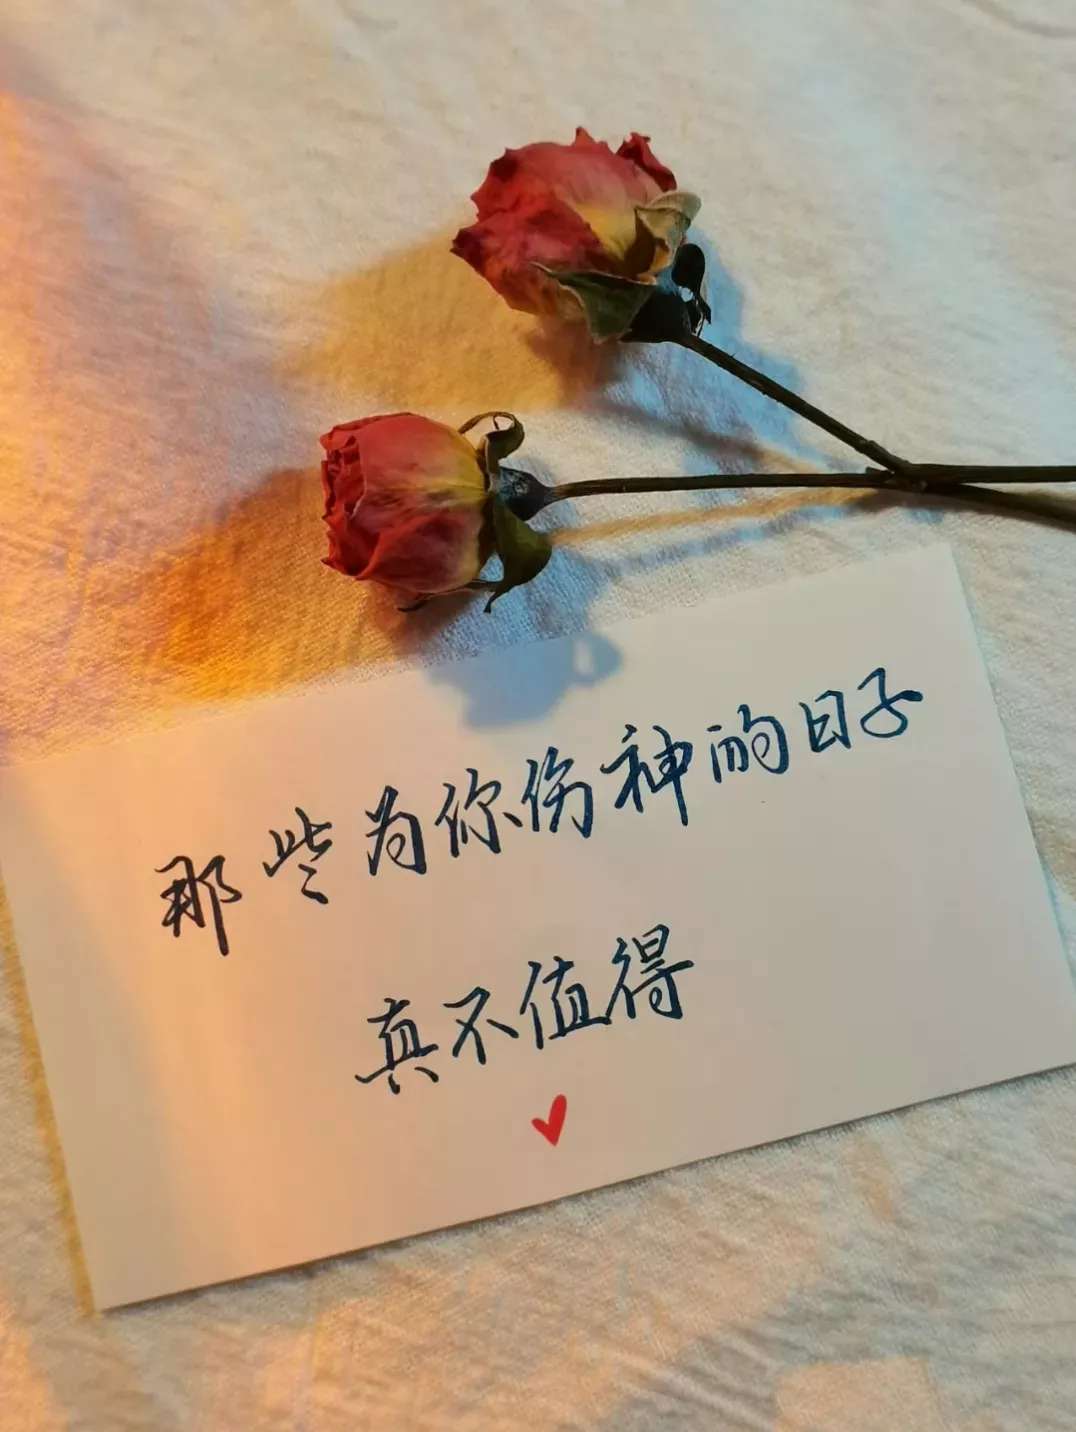 那些为你伤神的日子
真不值得